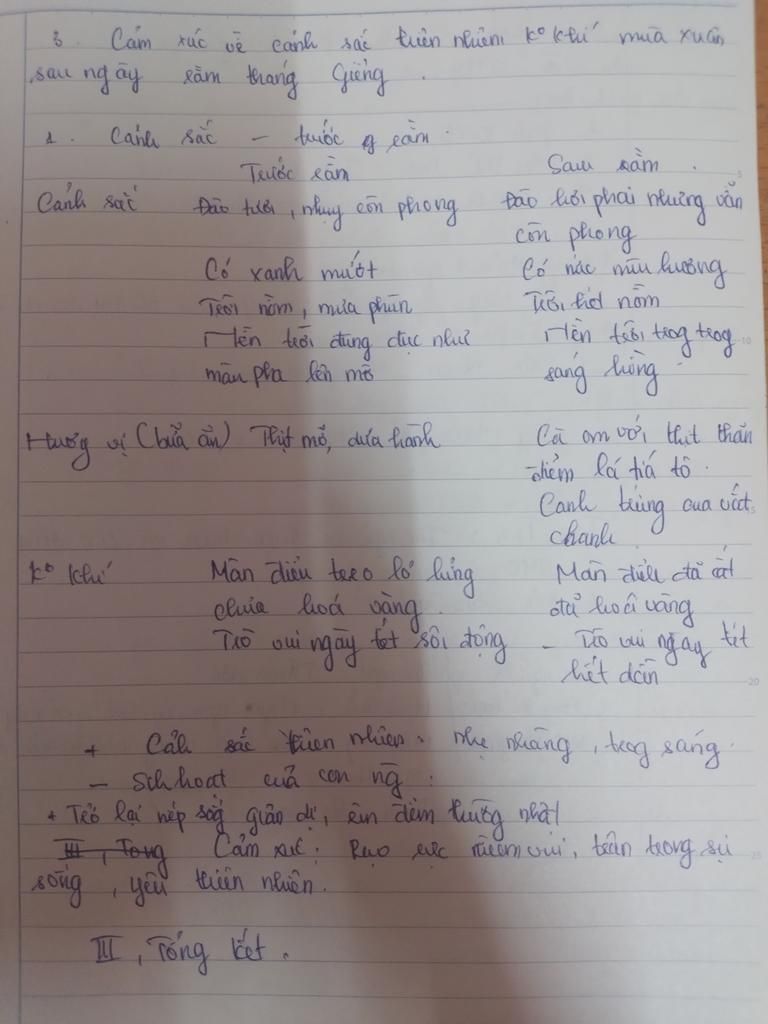 3. Cảm xúc về cảnh sắc thiên nhiên k° khí mùa xuân
sau ngày rằm tháng Giêng.
1. Cảnh sắc - trước rằm.
Trước rằm Sau rằm.
Cảnh sắc Đào tươi, nhụy còn phong Đào hơi phai nhưng vẫn
còn phong
Cỏ xanh mướt Cỏ nức mùi hương
Trời nồm, mưa phùn Trời hết nồm
Nền trời đùng đục như Nền trời trog trog
màu pha lên mờ sáng hồng
Hương vị (bữa ăn) Thịt mỡ, dưa hành Cà om với thịt thăn
điểm lá tiá tô.
Canh trứng cua vắt
chanh
k° khí Màn điều treo lơ lửng Màn điều đã cất
chưa hoá vàng. đã hoá vàng
Trò vui ngày tết sôi động - Trò vui ngày tết
hết dần
+ Cảnh sắc thiên nhiên: nhẹ nhàng, trog sáng.
- Sch hoạt của con ng:
+ Trở lại nếp sốg giản dị, êm đềm thường nhật
III, Tổng Cảm xúc: Rạo rực niềm vui, trân trọng sự
sống, yêu thiên nhiên.
III, Tổng kết.